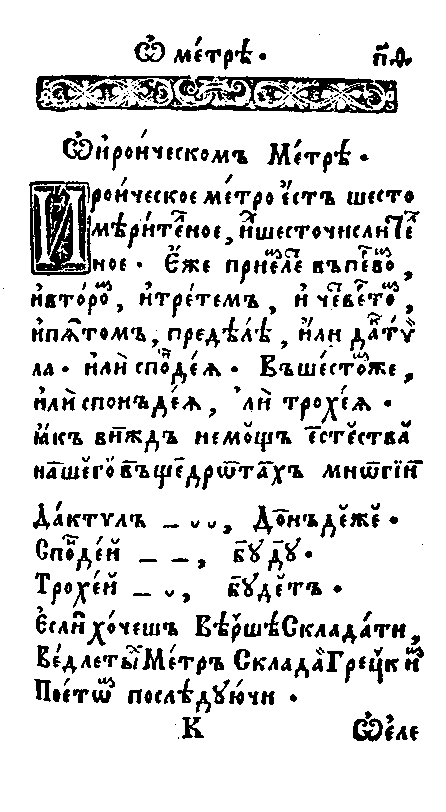 Ѿ ме́трѣ · п҃ѳ.
Ѿ и҆рои́ческомъ Ме́трѣ ·
И҆рои́ческое ме́тро є҆́стъ шесто
мѣри́телное, и҆ шесточисли́тел
ное · Є҆́же прие́млетъ въ пе́рвомъ,
и҆ второ́мъ, и҆ тре́темъ, и҆ че́тве́ртомъ,
и҆ пѧ́томъ, предѣ́лѣ, и҆́ли да́ктѵ
ла · и҆лѝ спонде́ѧ · Въ шесто́мже,
и҆лѝ спонъде́ѧ, лѝ трохе́ѧ ·
ꙗ҆́къ ви́ждъ не́мощъ є҆стества̀
на́шегѡ въ щедро́тахъ мно́гїй
Да́ктѵлъ _ ᴗ ᴗ, До́нъдеже ·
Сподде́й _ _, бꙋ́дꙋ ·
Трохе́й _ ᴗ, бꙋ́детъ ·
Є҆сли хо́чешъ Ве́ршѣ Склада́ти,
Ве́дле ты́хъ Ме́тръ Склада́й Гре́цкимъ
Пое́томъ послѣ́дꙋючи ·
К Ѿ є҆ле